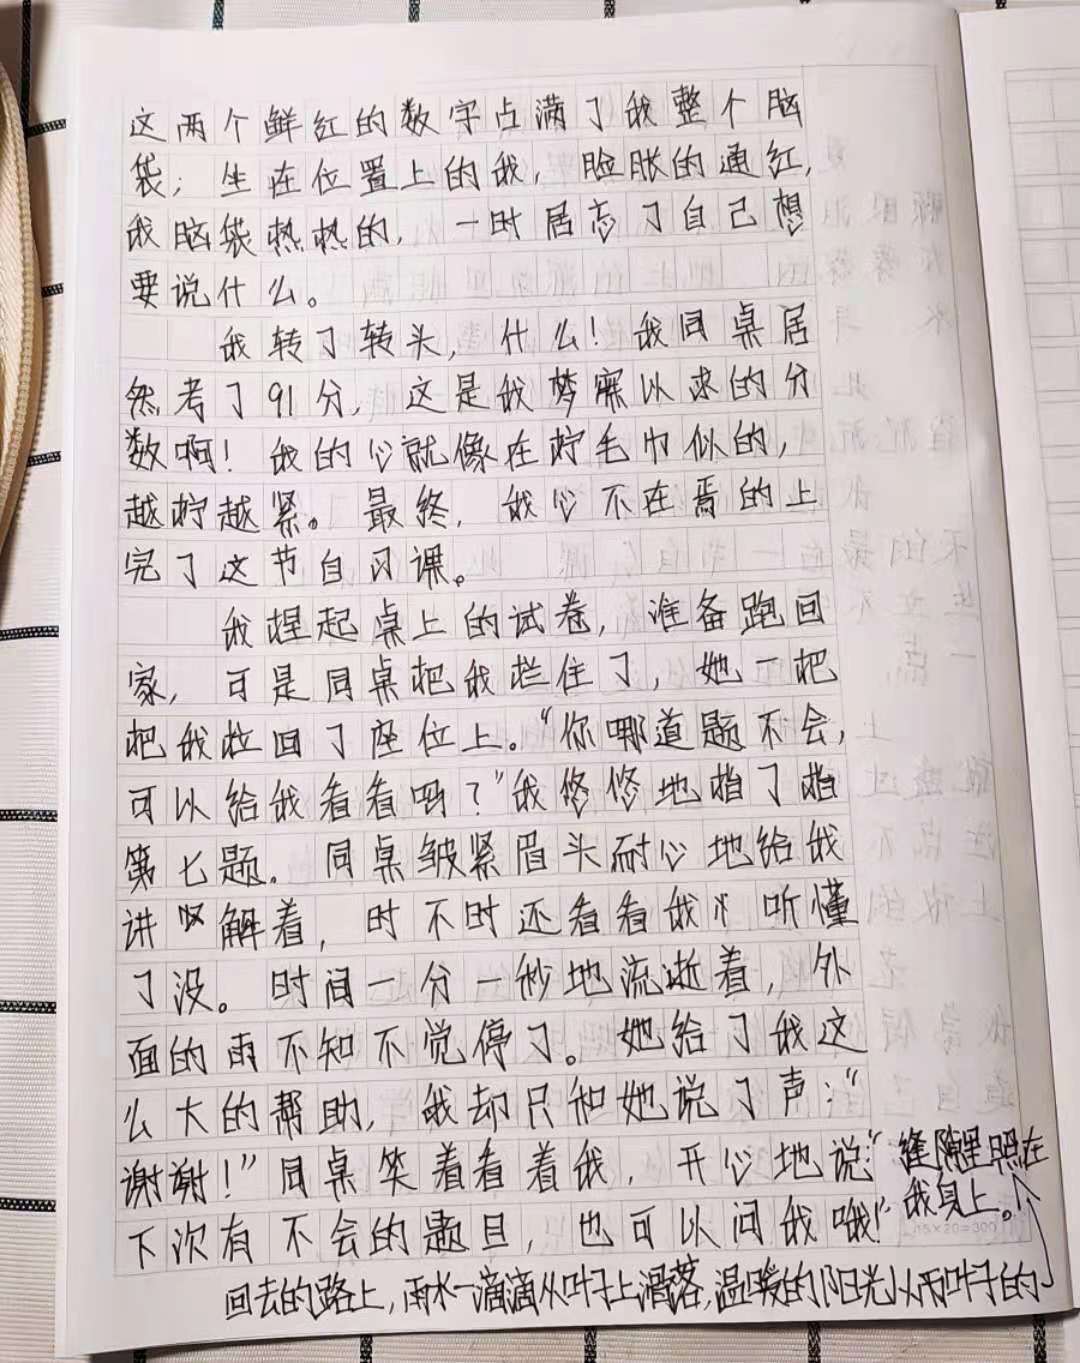 这两个鲜红的数字占满了我整个脑
袋；坐在位置上的我，脸胀的通红，
我脑袋热热的，一时居忘了自己想
要说什么。
我转了转头，什么！我同桌居
然考了91分，这是我梦寐以求的分
数啊！我的心就像在拧毛巾似的，
越拧越紧。最终，我心不在焉的上
完了这节自习课。
我捏起桌上的试卷，准备跑回
家，可是同桌把我拦住了，她一把
把我拉回了座位上。“你哪道题不会，
可以给我看看吗？”我悠悠地指了指
第七题。同桌皱紧眉头耐心地给我
讲解着，时不时还看看我听懂
了没。时间一分一秒地流逝着，外
面的雨不知不觉停了。她给了我这
么大的帮助，我却只和她说了声：“
谢谢！”同桌笑着看着我，开心地说：“
下次有不会的题目，也可以问我哦！”
回去的路上，雨水一滴滴从叶子上滑落，温暖的阳光从两叶子的
缝隙里照在
我身上。
15×20=300